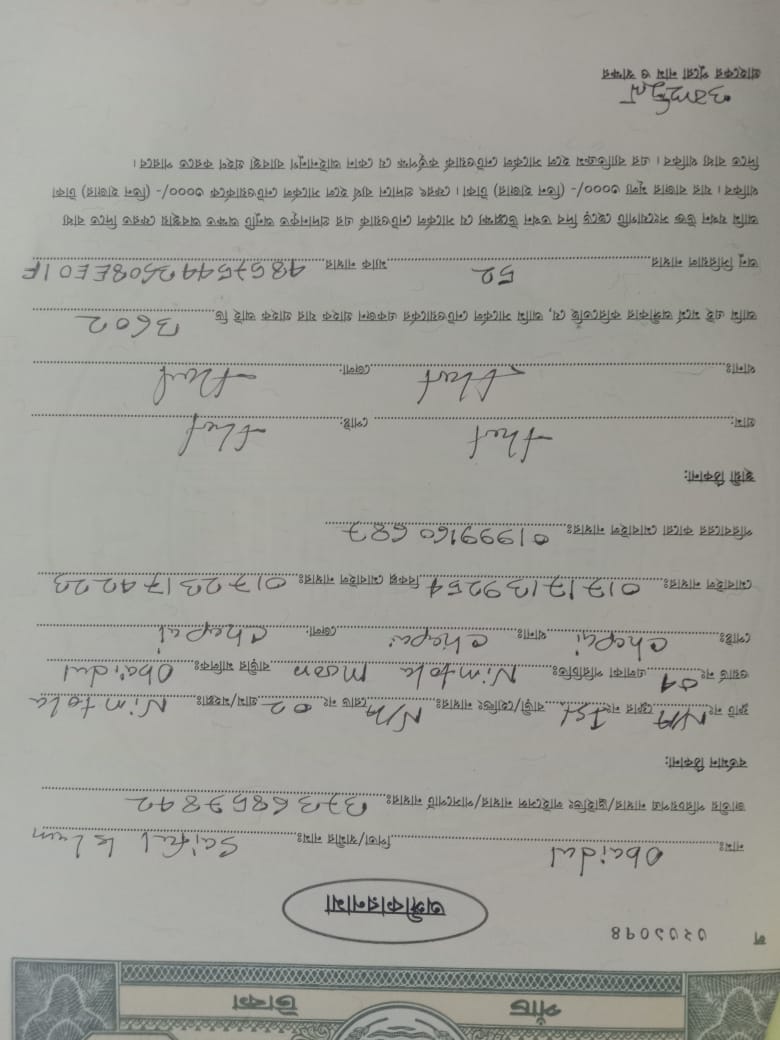 পাঁচ টাকা
ল ০২০১০৭৪
অঙ্গীকারনামা
নামঃ Obaidul পিতা/স্বামীর নামঃ Saiful Islam
জাতীয় পরিচয়পত্র নাম্বার/ড্রাইভিং লাইসেন্স নাম্বার/পাসপোর্ট নাম্বারঃ 3736857842
বর্তমান ঠিকানা:
ফ্লাট নং N/A ফ্লোর নং 1st বাড়ী/হোল্ডিং নাম্বারঃ N/A রোড নং 02 গ্রাম/মহল্লাঃ Nimtola
ওয়ার্ড নং 01 এলাকা পরিচিতিঃ Nimtola moor বাড়ীর মালিকঃ Obaidul
পোষ্টঃ Chapai থানাঃ Chapai জেলা: Chapai
মোবাইল নাম্বারঃ 01717139254 বিকল্প মোবাইল নাম্বারঃ 01723174223
পরিবারের কারো মোবাইল নাম্বারঃ 01999160687
স্থায়ী ঠিকানা:
গ্রাম: that পোষ্ট: that
থানাঃ that জেলা: that
আমি এই মর্মে অঙ্গীকার করিতেছি যে, আমি সার্কেল নেটওয়ার্কের একজন গ্রাহক যার গ্রাহক আইডি 3602
অনু সিরিয়াল নাম্বার 52 ম্যাক নাম্বার 485754432508EE01F
আমি যখন উক্ত সংযোগটি ছেড়ে দিব তখন উল্লেখ্য যে সার্কেল নেটওয়ার্ক এর প্রদানকৃত অনুটি অক্ষত অবস্থায় ফেরত দিতে বাধ্য
থাকিব। যার বাজার মূল্য ৩০০০/- (তিন হাজার) টাকা। ফেরৎ প্রদানে ব্যর্থ হলে সার্কেল নেটওয়ার্ককে ৩০০০/- (তিন হাজার) টাকা
দিতে বাধ্য থাকিব। এর ব্যতিক্রম হলে সার্কেল নেটওয়ার্ক কর্তৃপক্ষ যে কোন আইনানুগ ব্যবস্থা গ্রহণ করতে পারবে।
গ্রাহকের পুরো নাম ও স্বাক্ষর